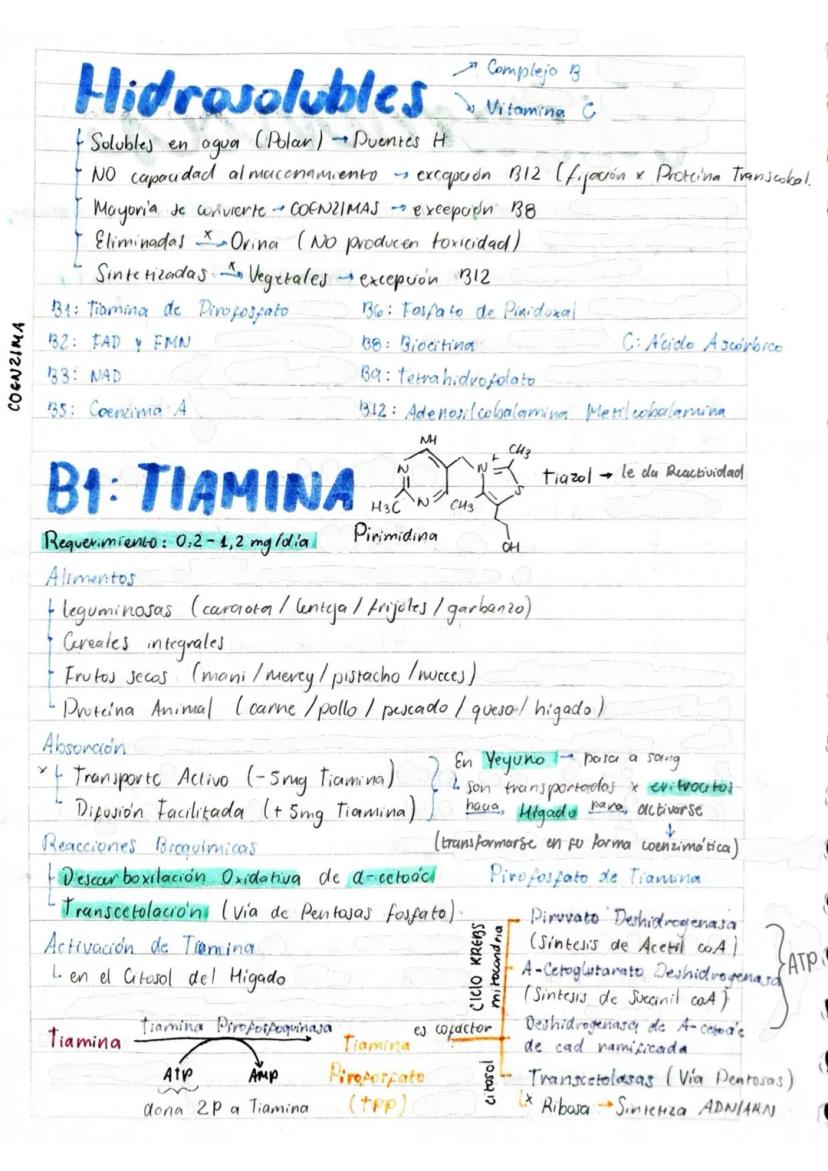 Hidrosolubles
→ Complejo B
→ Vitamina C
Solubles en agua (Polar) → Puentes H
NO capacidad almacenamiento → excepción B12 (fijación x Proteína Transcobal.
Mayoría se convierte → COENZIMAS → excepción B8
Eliminadas x→ Orina (NO producen toxicidad)
Sintetizadas x→ Vegetales → excepción B12
COENZIMA
B1: Tiamina de Pirofosfato
B6: Fosfato de Piridoxal
B2: FAD y FMN
B8: Biocitina
C: Ácido Ascórbico
B3: NAD
B9: Tetrahidrofolato
B5: Coenzima A
B12: Adenosilcobalamina Metilcobalamina
B1: TIAMINA
NH
N
N
H3C
CH3
N+
CH3
S
OH
Pirimidina
Tiazol → le da Reactividad
Requerimiento: 0,2 - 1,2 mg/día
Alimentos
Leguminosas (caraota / lenteja / frijoles / garbanzo)
Cereales integrales
Frutos secos (mani / merey / pistacho / nueces)
Proteína Animal (carne / pollo / pescado / queso / hígado)
Absorción
x Transporte Activo (-5mg Tiamina)
Difusión Facilitada (+5mg Tiamina)
En Yeyuno → pasa a sang
son transportados x eritrocitos
hacia Hígado para activarse
(transformarse en su forma coenzimática)
Pirofosfato de Tiamina
Reacciones Bioquímicas
Descarboxilación Oxidativa de α-cetoác
Transcetolación (Vía de Pentosas fosfato)
Activación de Tiamina
en el Citosol del Hígado
Tiamina
Tiamina Pirofosfoquinasa
ATP
AMP
dona 2P a Tiamina
Tiamina
Pirofosfato
(TPP)
es cofactor
CICLO KREBS
mitocondria
Piruvato Deshidrogenasa
(Síntesis de Acetil coA)
A-Cetoglutarato Deshidrogenasa
(Síntesis de Succinil coA)
ATP
Deshidrogenasa de A-cetoác
de cad ramificada
citosol
Transcetolasas (Vía Pentosas)
x Ribosa → Sintetiza ADN/ARN